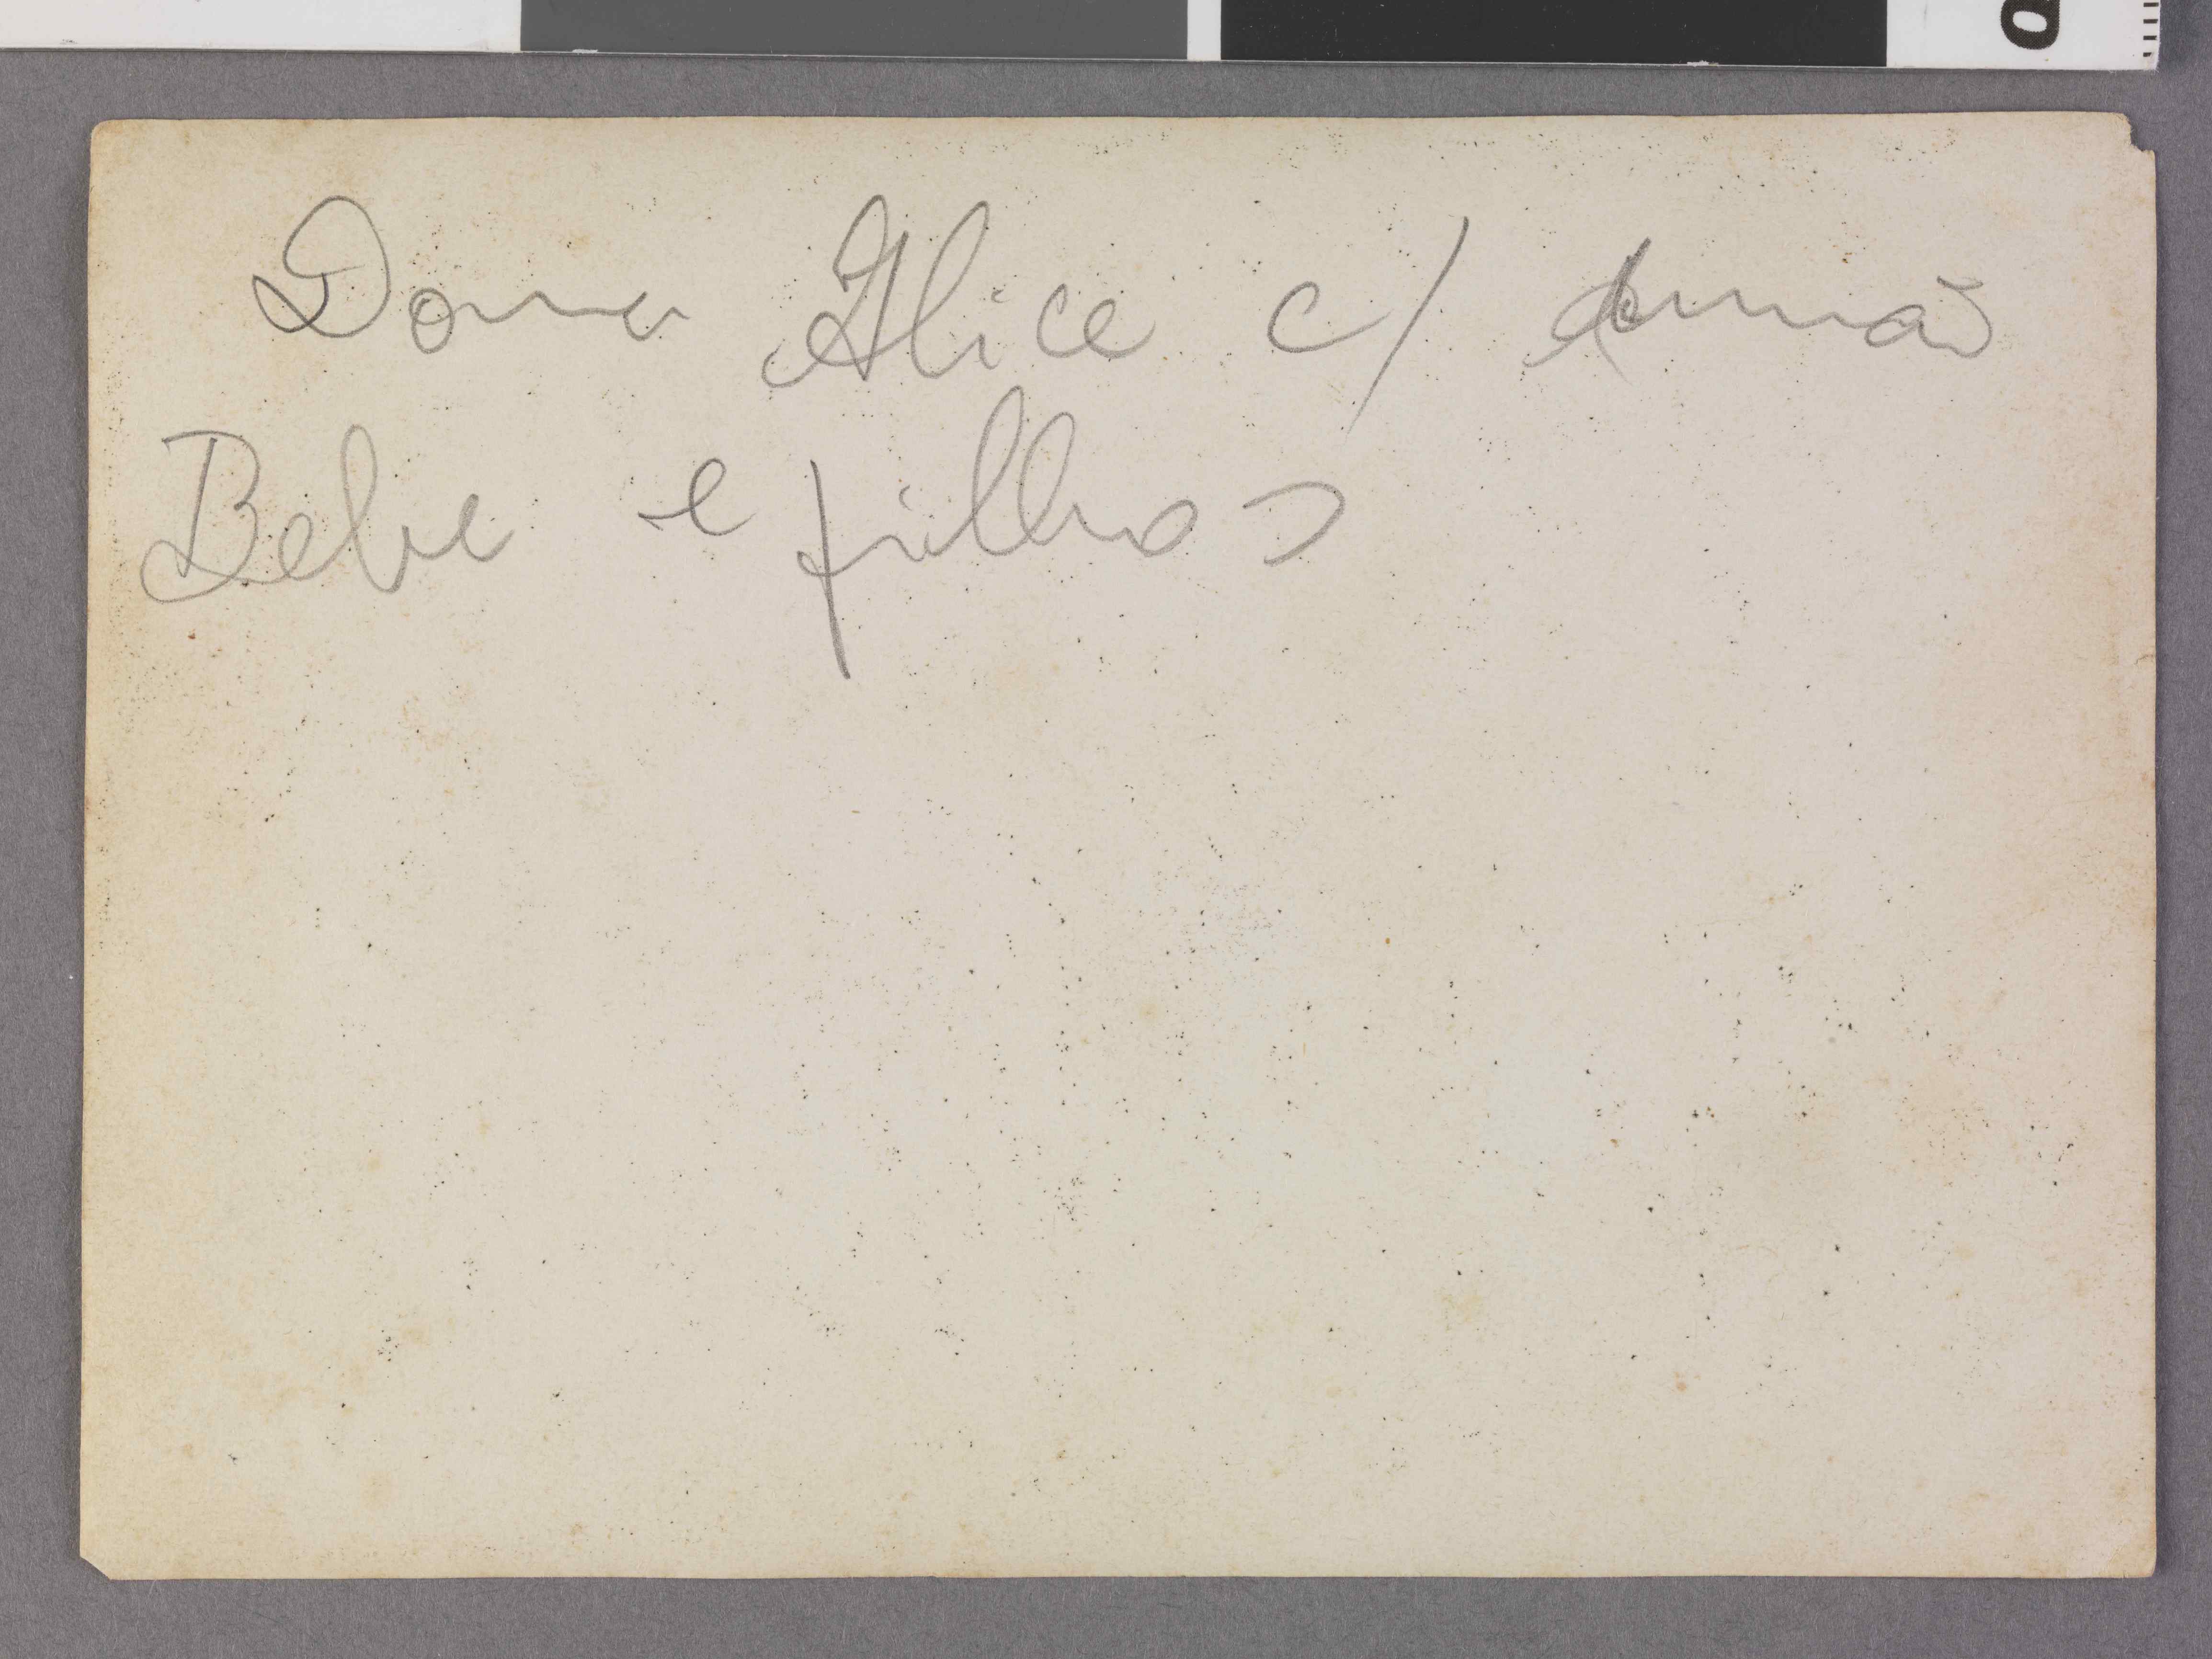 Dona Alice c/ irmã
Bebe e filhos